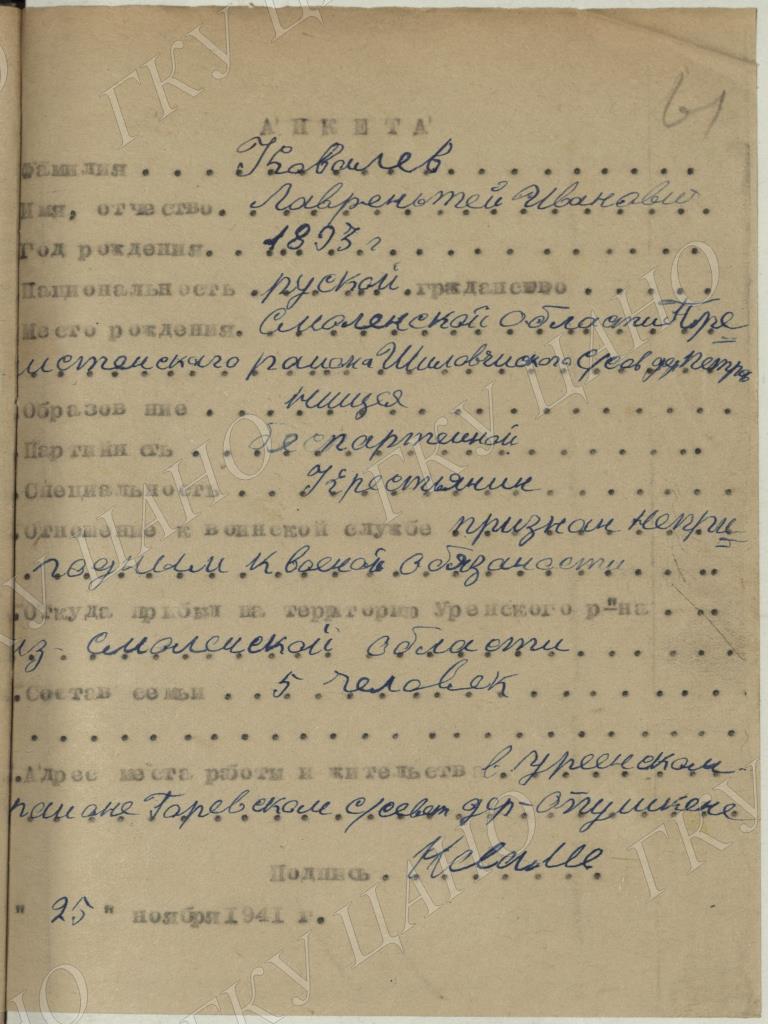 61
АНКЕТА
Фамилия . . . Ковалев
Имя, отчество. Лаврентей Иванович
Год рождения. 1893 г
Национальность руской гржданство
Место рождения. Смоленской области Пре=
истенского района Шиловчиского С/сов дер
Образов ние . . . нисщея
Партийн сть . . . беспартейной
Специальность . . Крестьянин
Отношение к воинской службе признан непри=
годным к военой обязаности
Откуда прибыл на територию Уренского р-на
из Смоленской области
Состав семьи . . 5 человек
Адрес места работы и жительства в Уренском
районе Горевском с/совет дер-
Подпись
" 25 " ноября 1941 г.
ГКУ ЦАНО